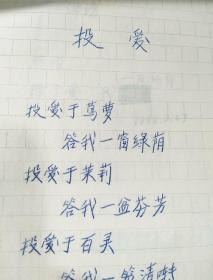 投 爱
投爱于茑萝
答我一窗绿荫
投爱于茉莉
答我一盆芬芳
投爱于百灵
答我一